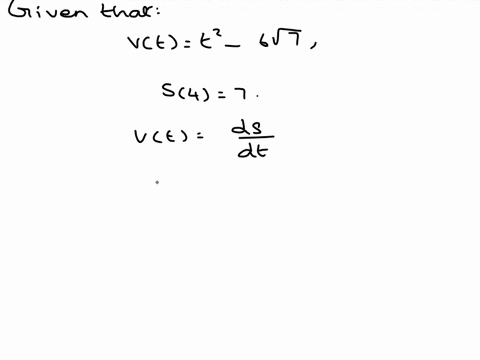 Given that:
V(t) = t² - 6√7,
S(4) = 7.
V(t) = ds/dt